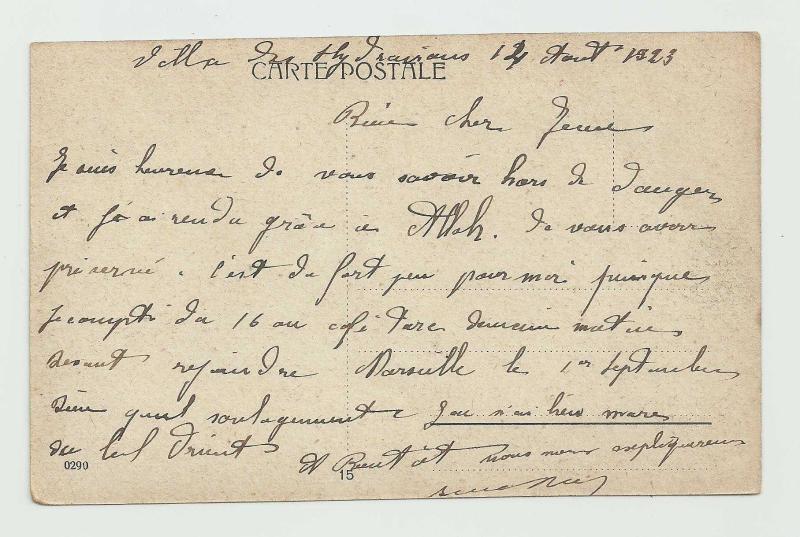 Villa des 12 Aout 1923
CARTE POSTALE
Bien cher
Je suis heureuse de vous savoir hors de danger
et j'ai rendu grâce à Allah. de vous avoir
préservé. c'est du fort peu pour moi puisque
Je compte du 16 au café Turc matin
devant rejoindre Marseille le 1er Septembre
Dieu quel soulagement. J'en
du bel Orient
et Bientôt nous nous expliquerons
0290
15